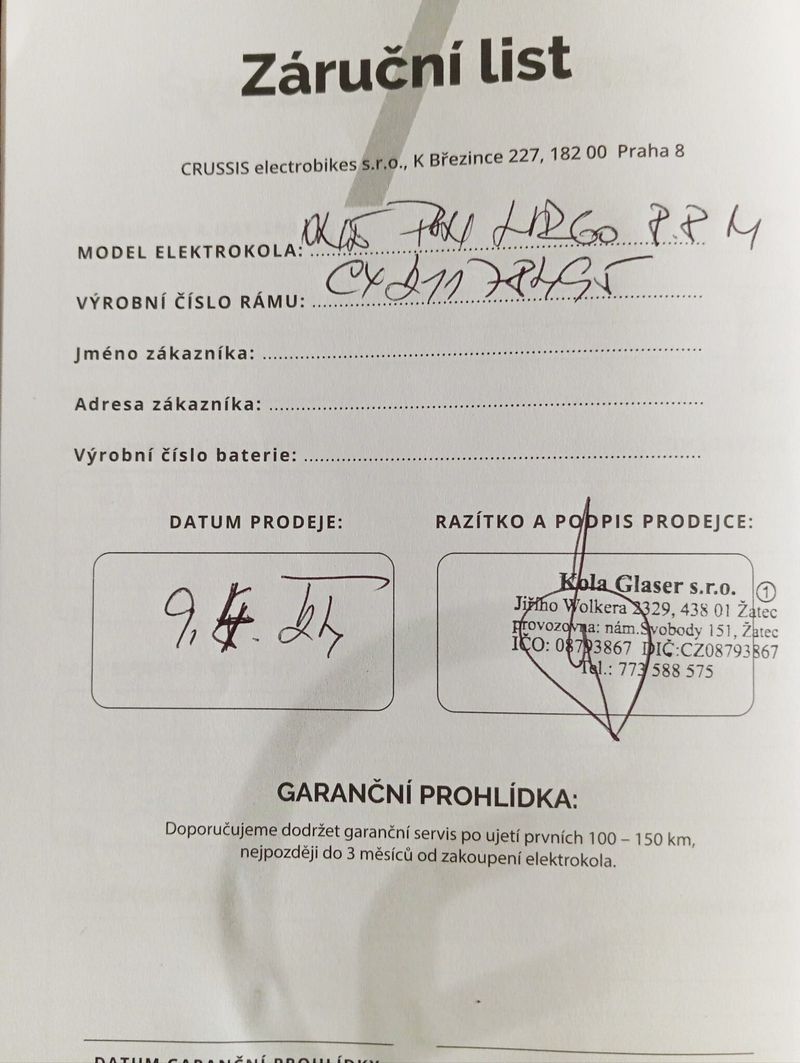 Záruční list
CRUSSIS electrobikes s.r.o., K Březince 227, 182 00 Praha 8
MODEL ELEKTROKOLA: LARGO 8.8 M
VÝROBNÍ ČÍSLO RÁMU:
Jméno zákazníka:
Adresa zákazníka:
Výrobní číslo baterie:
DATUM PRODEJE:
RAZÍTKO A PODPIS PRODEJCE:
9. 4. 24
Kola Glaser s.r.o. 1
Jiřího Wolkera 2329, 438 01 Žatec
provozovna: nám.Svobody 151, Žatec
IČO: 08793867 DIČ:CZ08793867
Tel.: 773 588 575
GARANČNÍ PROHLÍDKA:
Doporučujeme dodržet garanční servis po ujetí prvních 100 – 150 km,
nejpozději do 3 měsíců od zakoupení elektrokola.
DATUM GARANČNÍ PROHLÍDKY